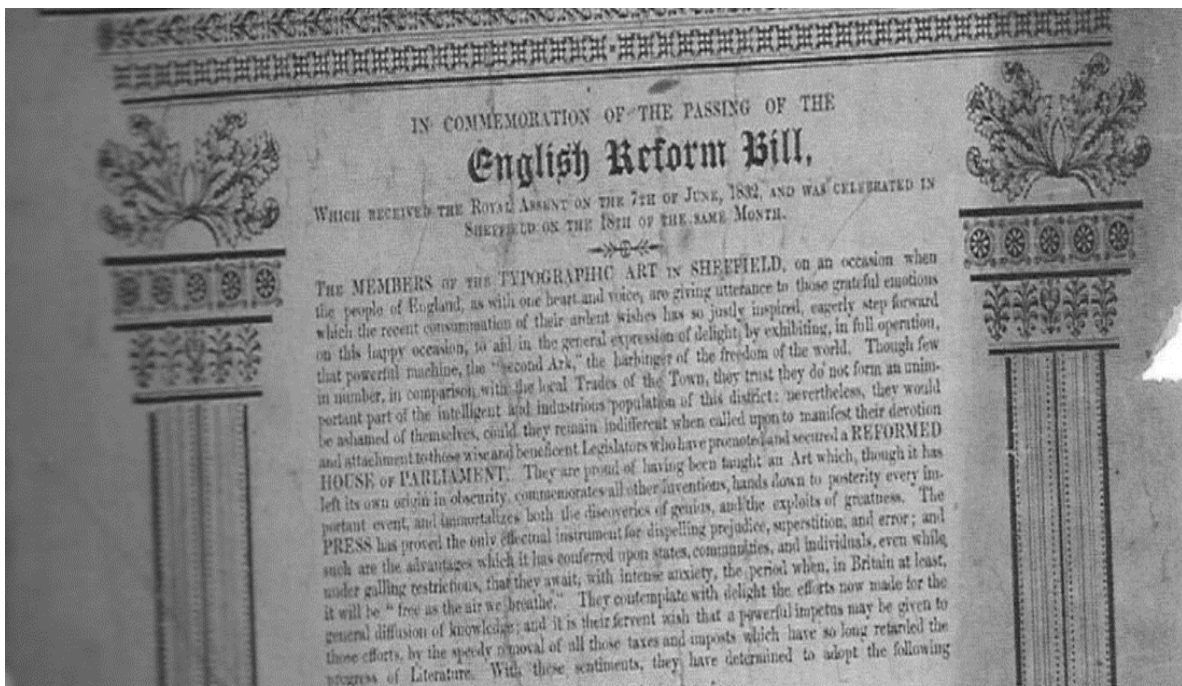 IN COMMEMORATION OF THE PASSING OF THE
English Reform Bill,
WHICH RECEIVED THE ROYAL ASSENT ON THE 7TH OF JUNE, 1832, AND WAS CELEBRATED IN
SHEFFIELD ON THE 18TH OF THE SAME MONTH.
THE MEMBERS OF THE TYPOGRAPHIC ART IN SHEFFIELD, on an occasion when
the people of England, as with one heart and voice, are giving utterance to those grateful emotions
which the recent consummation of their ardent wishes has so justly inspired, eagerly step forward
on this happy occasion, to aid in the general expression of delight, by exhibiting, in full operation,
that powerful machine, the "second Ark," the harbinger of the freedom of the world. Though few
in number, in comparison with the local Trades of the Town, they trust they do not form an unim-
portant part of the intelligent and industrious population of this district: nevertheless, they would
be ashamed of themselves, could they remain indifferent when called upon to manifest their devotion
and attachment to those wise and beneficent Legislators who have promoted and secured a REFORMED
HOUSE OF PARLIAMENT. They are proud of having been taught an Art which, though it has
left its own origin in obscurity, commemorates all other inventions, hands down to posterity every im-
portant event, and immortalizes both the discoveries of genius, and the exploits of greatness. The
PRESS has proved the only effectual instrument for dispelling prejudice, superstition, and error; and
such are the advantages which it has conferred upon states, communities, and individuals, even while
under galling restrictions, that they await, with intense anxiety, the period when, in Britain at least,
it will be "free as the air we breathe." They contemplate with delight the efforts now made for the
general diffusion of knowledge; and it is their fervent wish that a powerful impetus may be given to
those efforts, by the speedy removal of all those taxes and imposts which have so long retarded the
progress of Literature. With these sentiments, they have determined to adopt the following